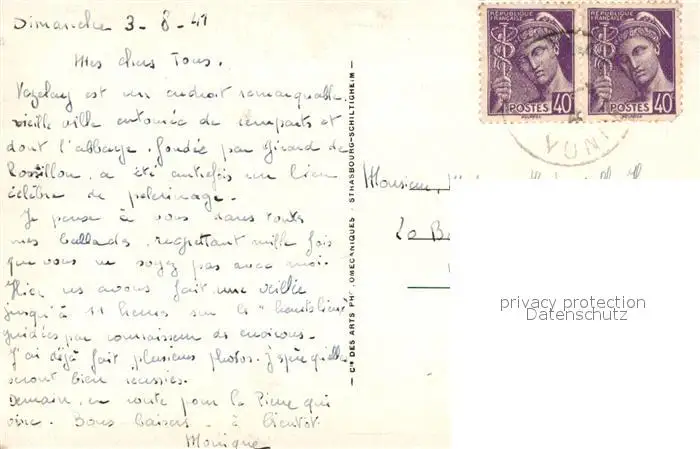 Dimanche 3-8-41
Mes chers Tous.
Vezelay est un endroit remarquable
vieille ville entourée de remparts et
dont l'abbaye fondée par Girard de
Rossillon, a été autrefois un lieu
célèbre de pelerinage.
Je pense à vous dans toutes
mes ballades, regrettant mille fois
que vous ne soyez pas avec moi.
Hier nous avons fait une veillée
jusqu'à 11 heures sur les "hauts lieux"
guidées par connaisseur des environs.
J'ai déjà fait plusieurs photos. J'espère qu'elles
seront bien réussies.
Demain, en route pour la Pierre qui
vire. Bons baisers - à bientôt.
Monique
Cie DES ARTS PHOTOMECANIQUES STRASBOURG-SCHILTIGHEIM
RÉPUBLIQUE FRANÇAISE
POSTES 40c
RÉPUBLIQUE FRANÇAISE
POSTES 40c
YONNE
Monsieur,
La
privacy protection
Datenschutz